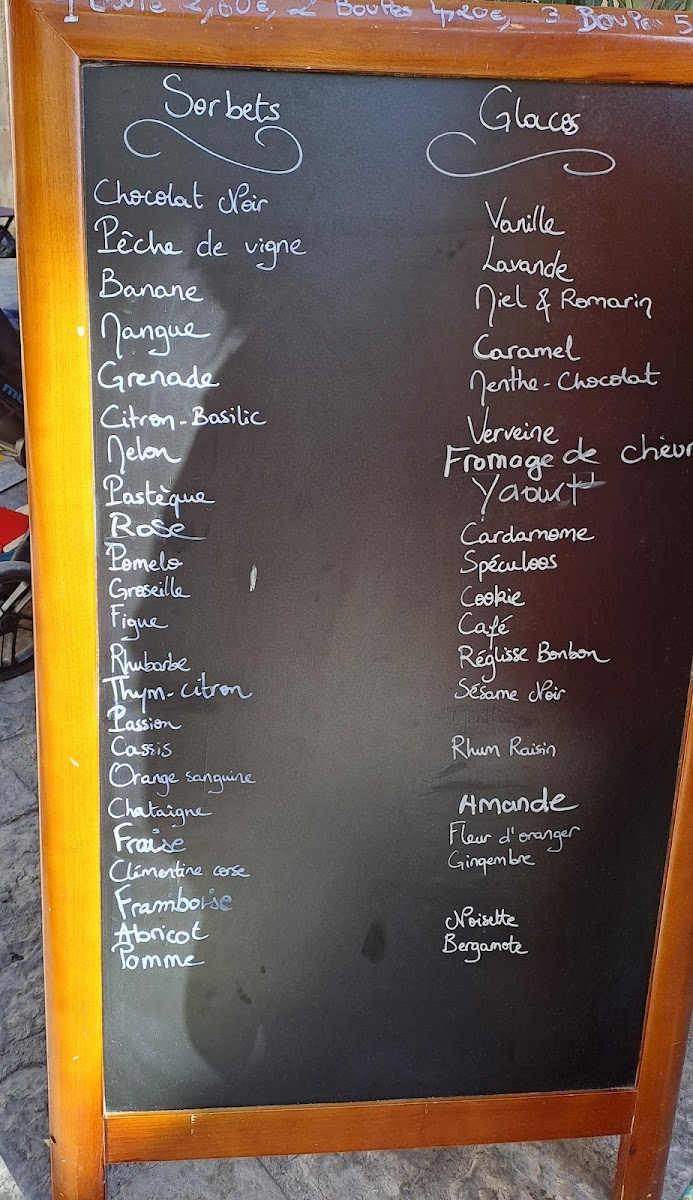 1 Boule 2,60€, 2 Boules 4,20€, 3 Boules 5
Sorbets
Chocolat Noir
Pêche de vigne
Banane
Mangue
Grenade
Citron-Basilic
Melon
Pastèque
Rose
Pomelo
Groseille
Figue
Rhubarbe
Thym-citron
Passion
Cassis
Orange sanguine
Chataîgne
Fraise
Clémentine corse
Framboise
Abricot
Pomme
Glaces
Vanille
Lavande
Miel & Romarin
Caramel
Menthe-Chocolat
Verveine
Fromage de chèvr
Yaourt
Cardamome
Spéculoos
Cookie
Café
Réglisse Bonbon
Sésame Noir
Rhum Raisin
Amande
Fleur d'oranger
Gingembre
Noisette
Bergamote